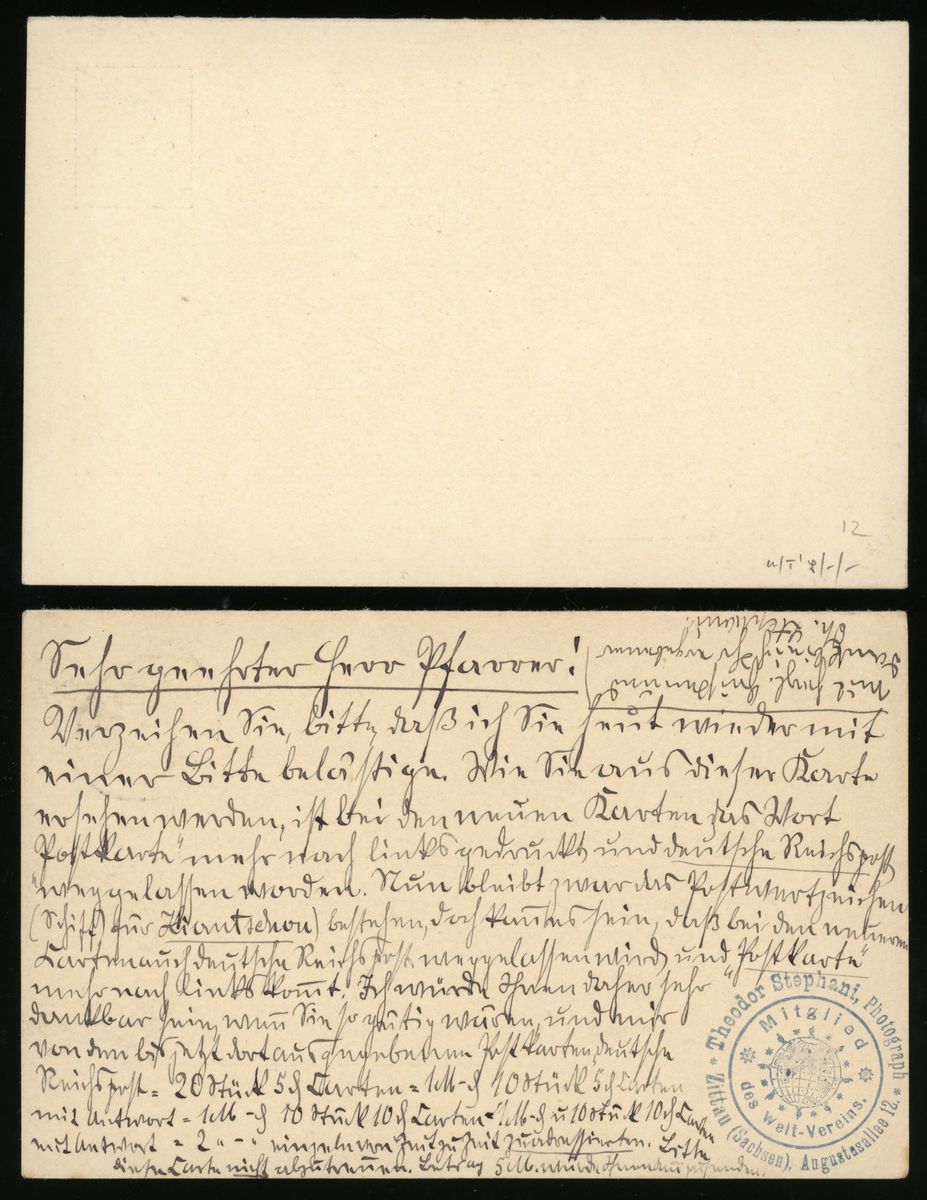 12
Sehr geehrter Herr Pfarrer!
Verzeihen Sie, bitte, daß ich Sie heut wieder mit
einer Bitte belästige. Wie Sie aus dieser Karte
ersehen werden, ist bei den neuen Karten das Wort
„Postkarte" mehr nach links gedruckt und deutsche Reichspost
weggelassen worden. Nun bleibt zwar das Postwertzeichen
(Schiff) für Kiautschou bestehen, doch kann es sein, daß bei den neueren
Karten auch deutsche Reichspost weggelassen wird und „Postkarte"
mehr nach links kom̅t. Ich würde Ihnen daher sehr
dankbar sein, wen̅ Sie so gütig wären, und mir
von den bis jetzt dort ausgegebenen Postkarten, deutsche
Reichspost = 20 Stück 5 ₰ Carten = 1 M - ₰ 10 Stück 5 ₰ Carten
mit Antwort = 1 M - ₰ 10 Stück 10 ₰ Carten = 1 M - ₰ u 10 Stück 10 ₰ Carten
mit Antwort = 2 " - " einzeln von Zeit zu Zeit zu adressierten. Bitte
diese Carte nicht abzutrennen. Betrag 5 M. würde Ihnen zusenden.
Mit
Dank
Th. Stephani.
Theodor Stephani, Photograph
Zittau (Sachsen), Augustasallee 12.
Mitglied
des Welt-Vereins.